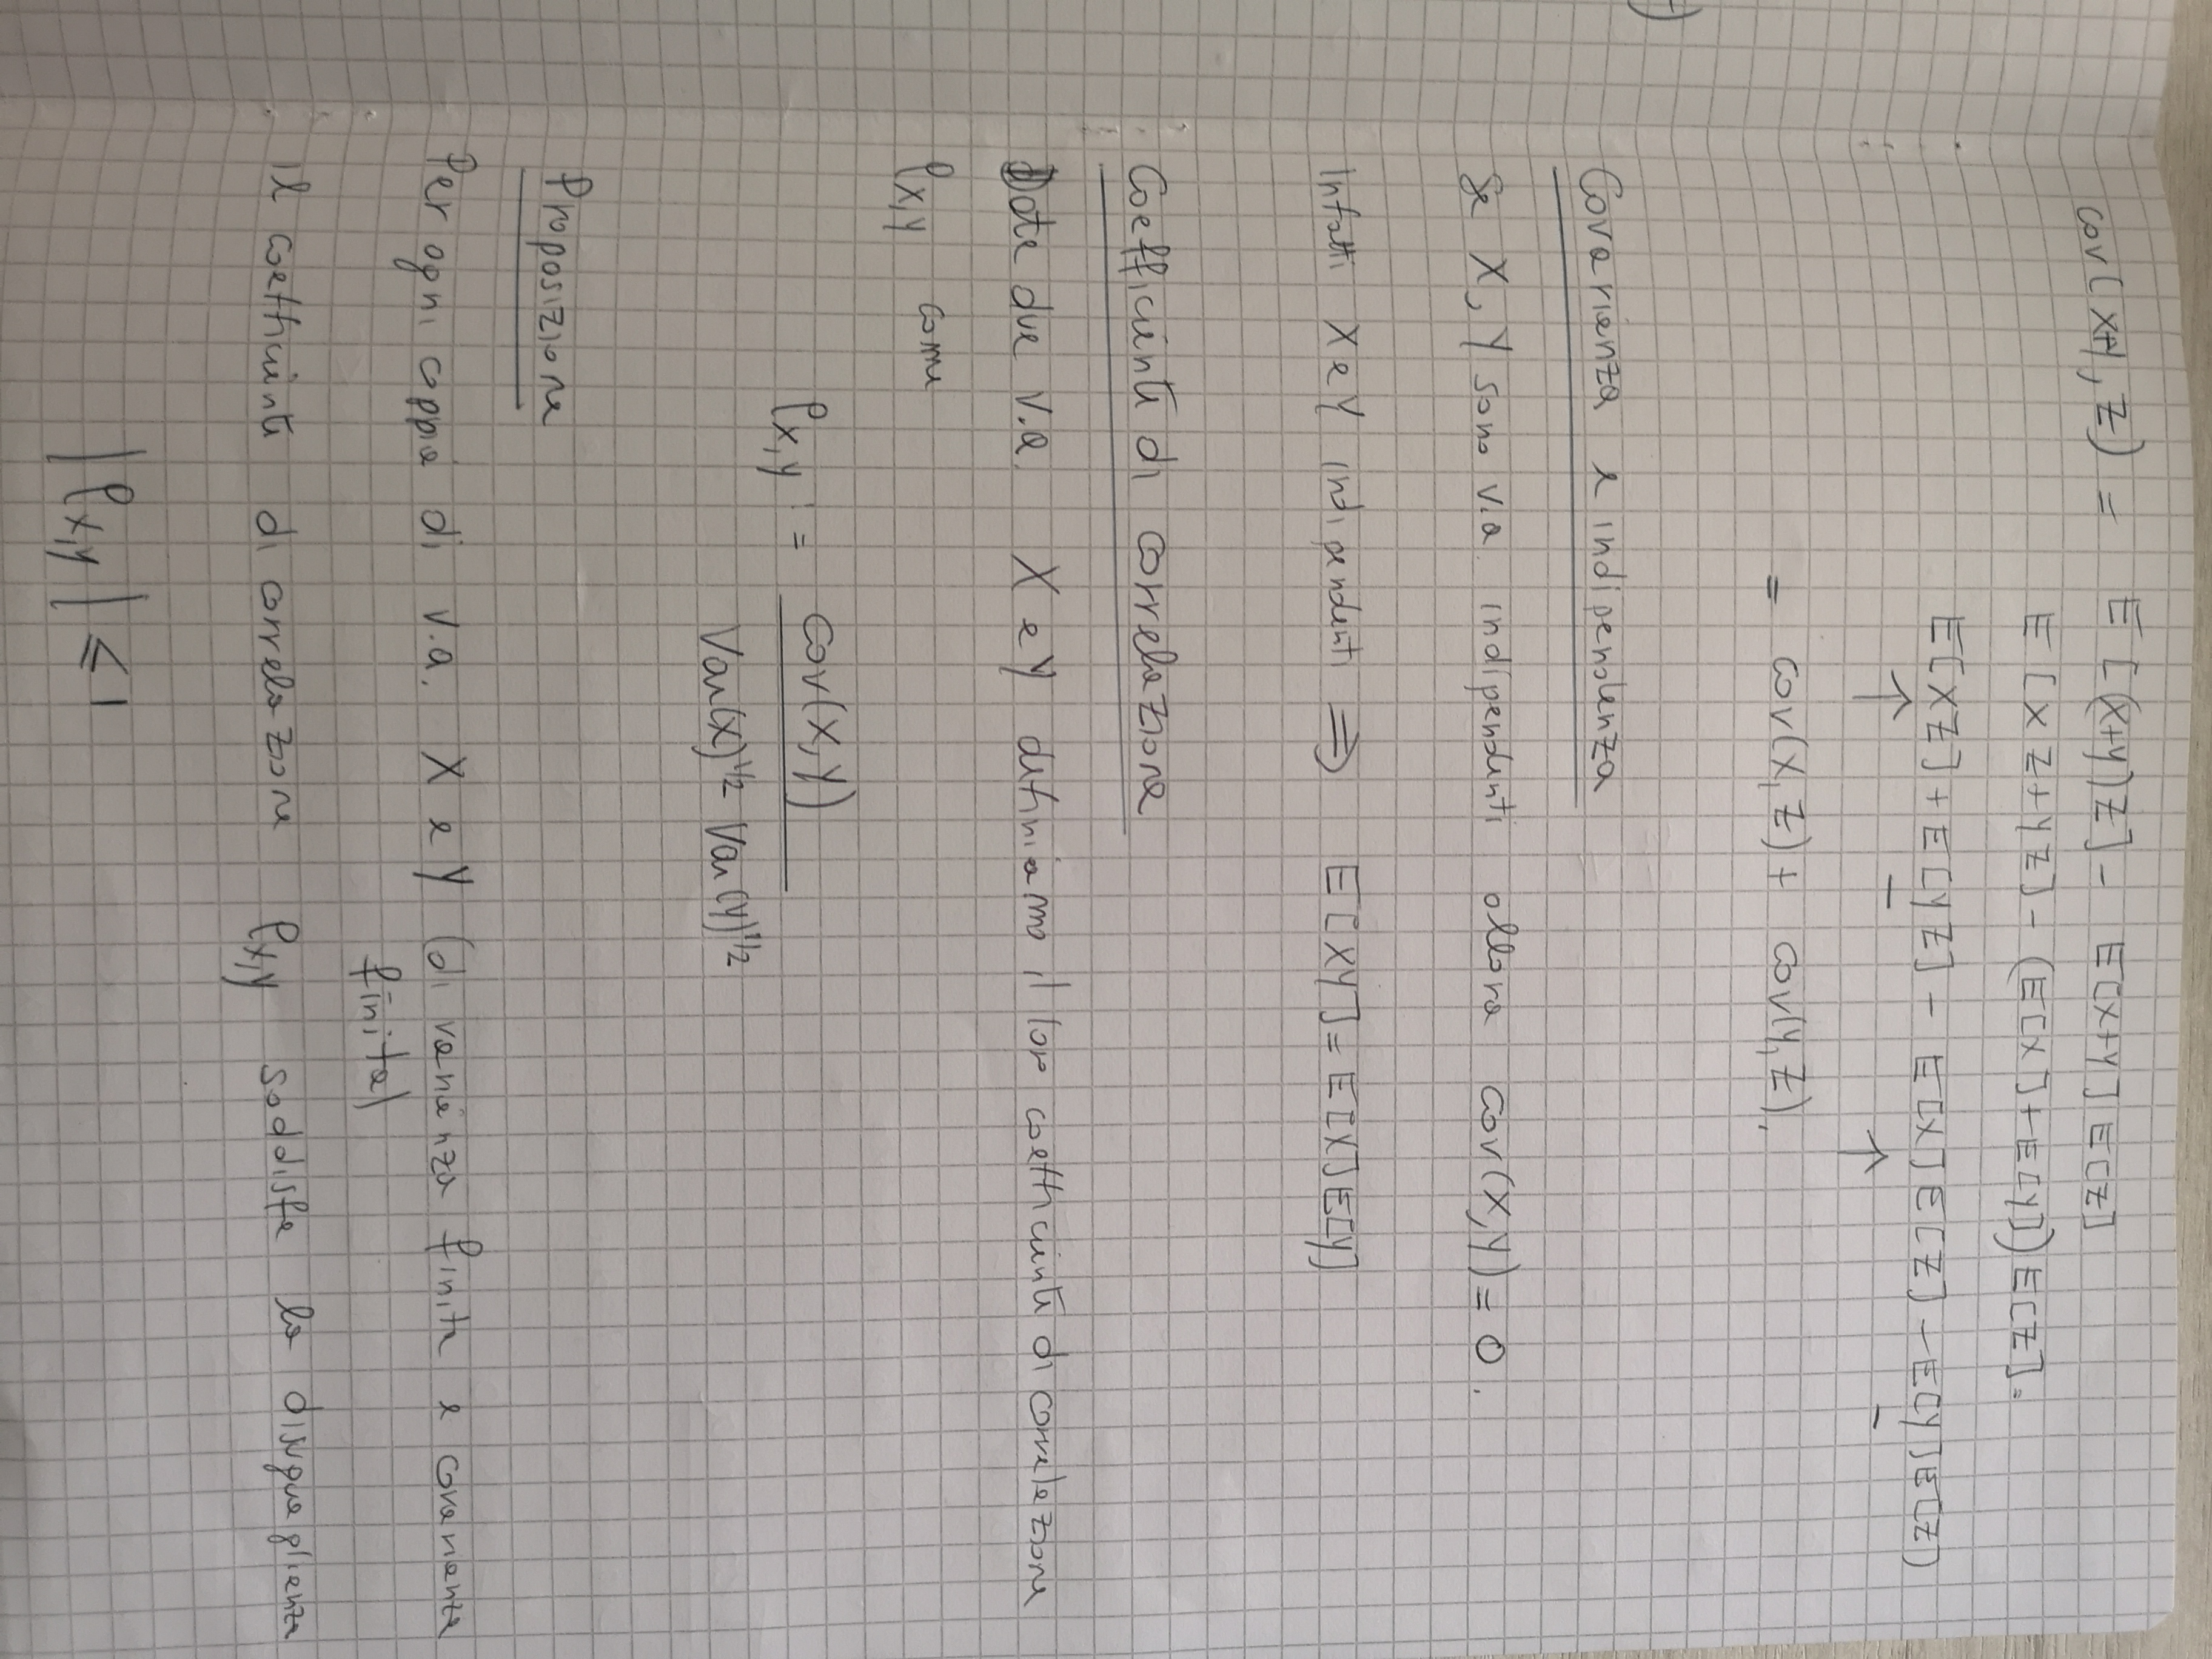 cov(X+Y, Z) = E[(X+Y)Z] - E[X+Y]E[Z]
E[XZ+YZ] - (E[X]+E[Y])E[Z] =
E[XZ] + E[YZ] - E[X]E[Z] - E[Y]E[Z]
↑ — ↑ —
= cov(X,Z) + cov(Y,Z).
Covarianza e indipendenza
Se X, Y sono v.a. indipendenti allora cov(X,Y) = 0.
Infatti X e Y indipendenti ⇒ E[XY] = E[X]E[Y]
Coefficiente di correlazione
Date due v.a. X e Y definiamo il loro coefficiente di correlazione
ρX,Y come
ρX,Y = cov(X,Y)
Var(X)^1/2 Var(Y)^1/2
Proposizione
Per ogni coppia di v.a. X e Y (di varianza finita e covarianza
finita)
il coefficiente di correlazione ρX,Y soddisfa la disuguaglianza
|ρX,Y| ≤ 1